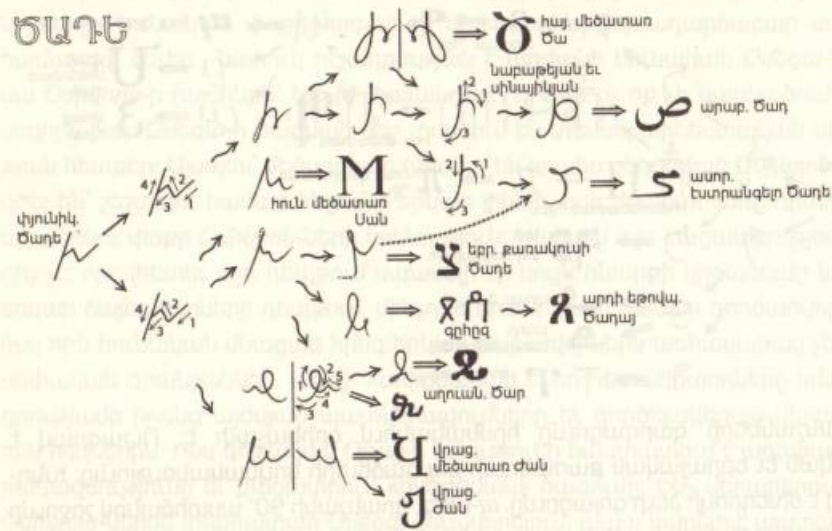 ԾԱԴԵ
Ծ
հայ. մեծատառ
Ծա
նաբաթեյան եւ
սինայիկյան
ص
արաբ. Ծադ
փյունիկ.
Ծադե
M
հուն. մեծատառ
Սան
ասոր.
Էստրանգելո Ծադե
եբր. քառակուսի
Ծադե
գըիըզ
արդի եթովպ.
Ծադայ
աղուան. Ծար
վրաց.
մեծատառ Ժան
վրաց.
Ժան